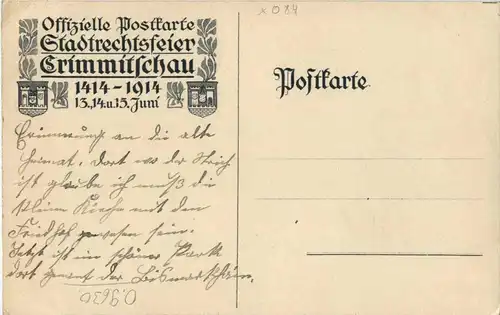 x 084
Offizielle Postkarte
Stadtrechtsfeier
Crimmitschau
1414-1914
13.,14.u.15. Juni
Postkarte
Erinnerung an die alte
Heimat, dort wo der Strich
ist glaube ich muß die
kleine Kirche mit den
Friedhof gewesen sein.
Jetzt ist ein schöner Park
dort genant der Bismarkhain.
0.9630